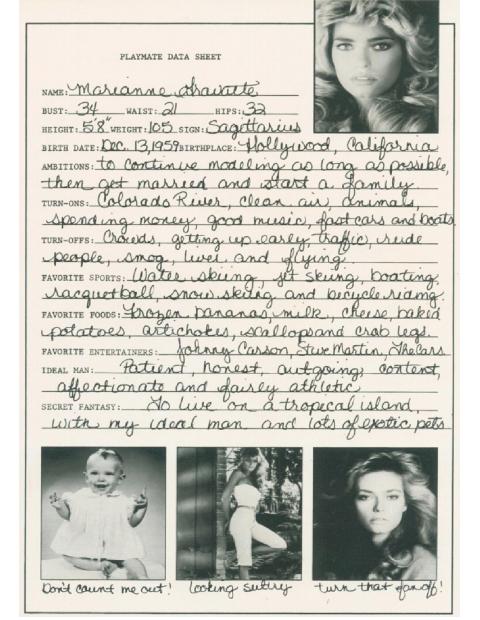 PLAYMATE DATA SHEET
NAME: Marianne Gravatte
BUST: 34 WAIST: 21 HIPS: 32
HEIGHT: 5'8" WEIGHT: 105 SIGN: Sagittarius
BIRTH DATE: Dec. 13, 1959 BIRTHPLACE: Hollywood, California
AMBITIONS: to continue modeling as long as possible,
then get married and start a family.
TURN-ONS: Colorado River, clean air, animals,
spending money, good music, fast cars and boats.
TURN-OFFS: Crowds, getting up early, traffic, rude
people, smog, liver and flying.
FAVORITE SPORTS: Water skiing, jet skiing, boating,
racquetball, snow skiing and bicycle riding.
FAVORITE FOODS: Frozen bananas, milk, cheese, baked
potatoes, artichokes, scallops and crab legs.
FAVORITE ENTERTAINERS: Johnny Carson, Steve Martin, The Cars
IDEAL MAN: Patient, honest, outgoing, content,
affectionate and fairly athletic
SECRET FANTASY: To live on a tropical island,
with my ideal man and lots of exotic pets
Don't count me out! looking sultry turn that fan off!